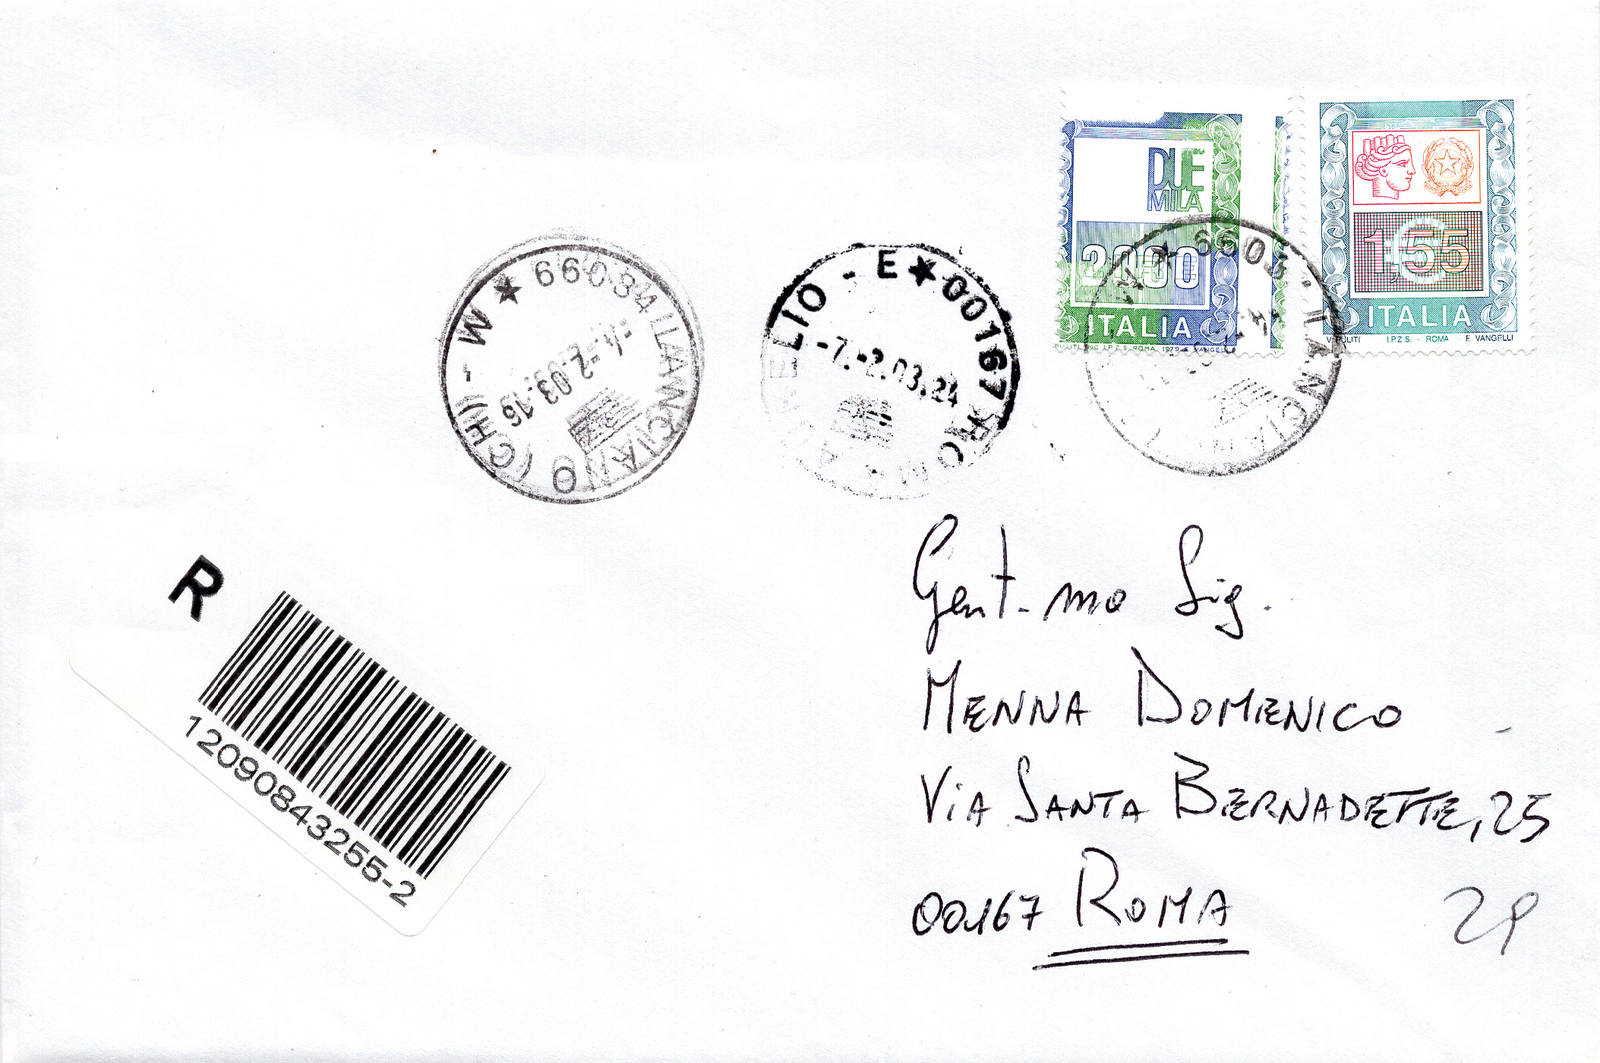 DUE
MILA
2000
ITALIA
I.P.Z.S. ROMA 1979
VANGELLI
1,55
€
ITALIA
I.P.Z.S. - ROMA
E. VANGELLI
66034 LANCIANO (CH) - W
-4.-2.03.16
LIO - E ★ 00167 RO
-7.-2.03.24
★ 6603 LANCIAN
R
12090843255-2
Gent-mo Sig.
MENNA DOMENICO
VIA SANTA BERNADETTE, 25
00167 ROMA